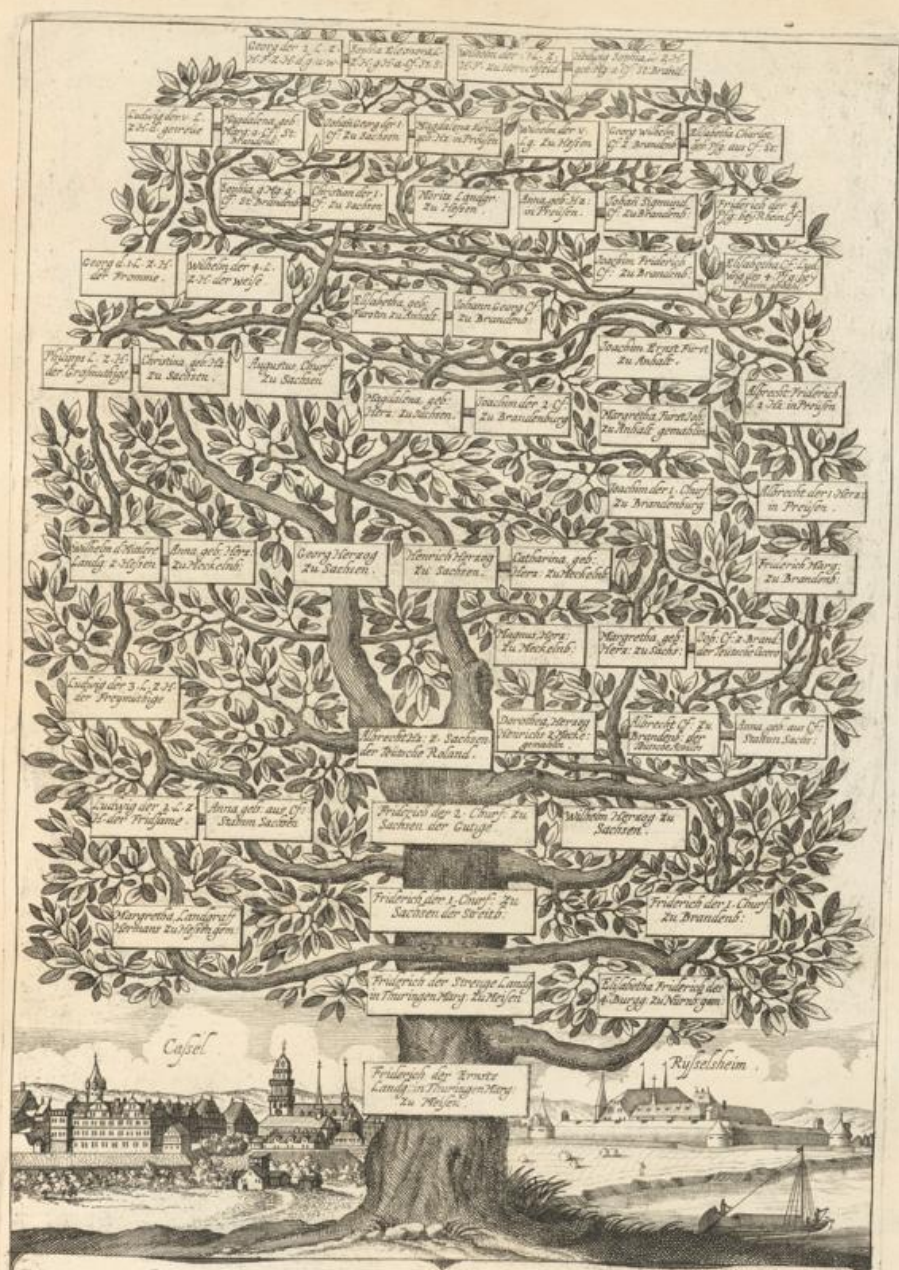 Georg der 2. L. Z.
H. F. Z. H. d. g. u. w.
Sophia Eleonora L.
Z. H. g. H. a. Cf. St. S.
Wilhelm der
H. F. zu Hirschfeld
Hedwig Sophia L. Z. H.
geb. Mg. a. Cf. St. Brand.
Ludwig der v. L.
Z. H. d. getreue
Magdalena, geb.
Marg. a. Cf. St.
Brandenb.
Johan Georg der 1.
Cf. zu Sachsen
Magdalena Sibylla
geb. Hz. in Preusen
Wilhelm der v.
Lg. zu Hessen
Georg Wilhelm
Cf. z. Brandenb
Elisabetha Charlot.
geb. Pfg. aus Cf. St.
Sophia g. Mg. a.
Cf. St. Brandenb
Christian der 1.
Cf. Zu Sachsen
Moritz Landgr.
Zu Hessen.
Anna, geb. Hz:
in Preusen.
Johan Sigmund
Cf. Zu Brandenb:
Friderich der 4.
Pfg. bey Rhein Cf.
Georg d. 1. L. Z. H.
der Fromme.
Wilhelm der 4. L.
Z. H. der weise
Joachim Friderich
Cf: Zu Brandenb:
Elisabetha Cf. Lud
wig des 4. Pfg. bey
Elisabetha, geb:
Furstin zu Anhalt.
Johann Georg Cf
Zu Brandenb
Philipps L. Z. H.
der Grosmuthige
Christina, geb: Hz.
Zu Sachsen.
Augustus, Churf:
Zu Sachsen
Joachim Ernst Furst
Zu Anhalt.
Magdalena, geb:
Herz: zu Sachsen.
Joachim der 2. Cf
Zu Brandenburg
Margretha, Furst Joh:
zu Anhalt gemahlin
Albrecht Friderich,
d. 2. Hz. in Preusen
Joachim der 1. Churf
Zu Brandenburg
Albrecht der 1. Herz:
in Preusen.
Wilhelm d. Mittlere
Landg: z. Hessen
Anna, geb: Herz:
zu Meckelnb:
Georg Herzog
Zu Sachsen.
Henrich Herzog
Zu Sachsen.
Catharina, geb:
Herz: zu Meckelnb
Friderich Marg:
zu Brandenb:
Magnus, Herz:
Zu Meckelnb:
Margretha, geb:
Herz: zu Sachs:
Joh: Cf: z. Brand:
der Teutsche Cicero
Ludwig der 3. L. Z. H
der Freymuthige
Albrecht Hz: z. Sachsen
der Teutsche Roland.
Dorothea, Herzog
Henrichs z. Mecke:
gemahlin.
Albrecht Cf. Zu
Brandenb: der
Teutsche Achilles
Anna, geb: aus Cf:
Stamm Sachs:
Ludwig der 2. L. Z.
H. der Fridsame.
Anna geb: aus Cf:
Stamm Sachsen
Friderich der 2. Churf: Zu
Sachsen der Gutige
Wilhelm Herzog zu
Sachsen.
Margretha, Landgraff
Hermans zu Hessen gem:
Friderich der 1. Churf: Zu
Sachsen der Streitb:
Friderich der 1. Churf:
zu Brandenb:
Friderich der Strenge Landg
in Thuringen Marg: Zu Meisen
Elisabetha Friderich des
4. Burgg. zu Nürnb: gem:
Cassel
Rysselsheim.
Friderich der Ernste
Landg: in Thuringen Marg:
Zu Meisen.